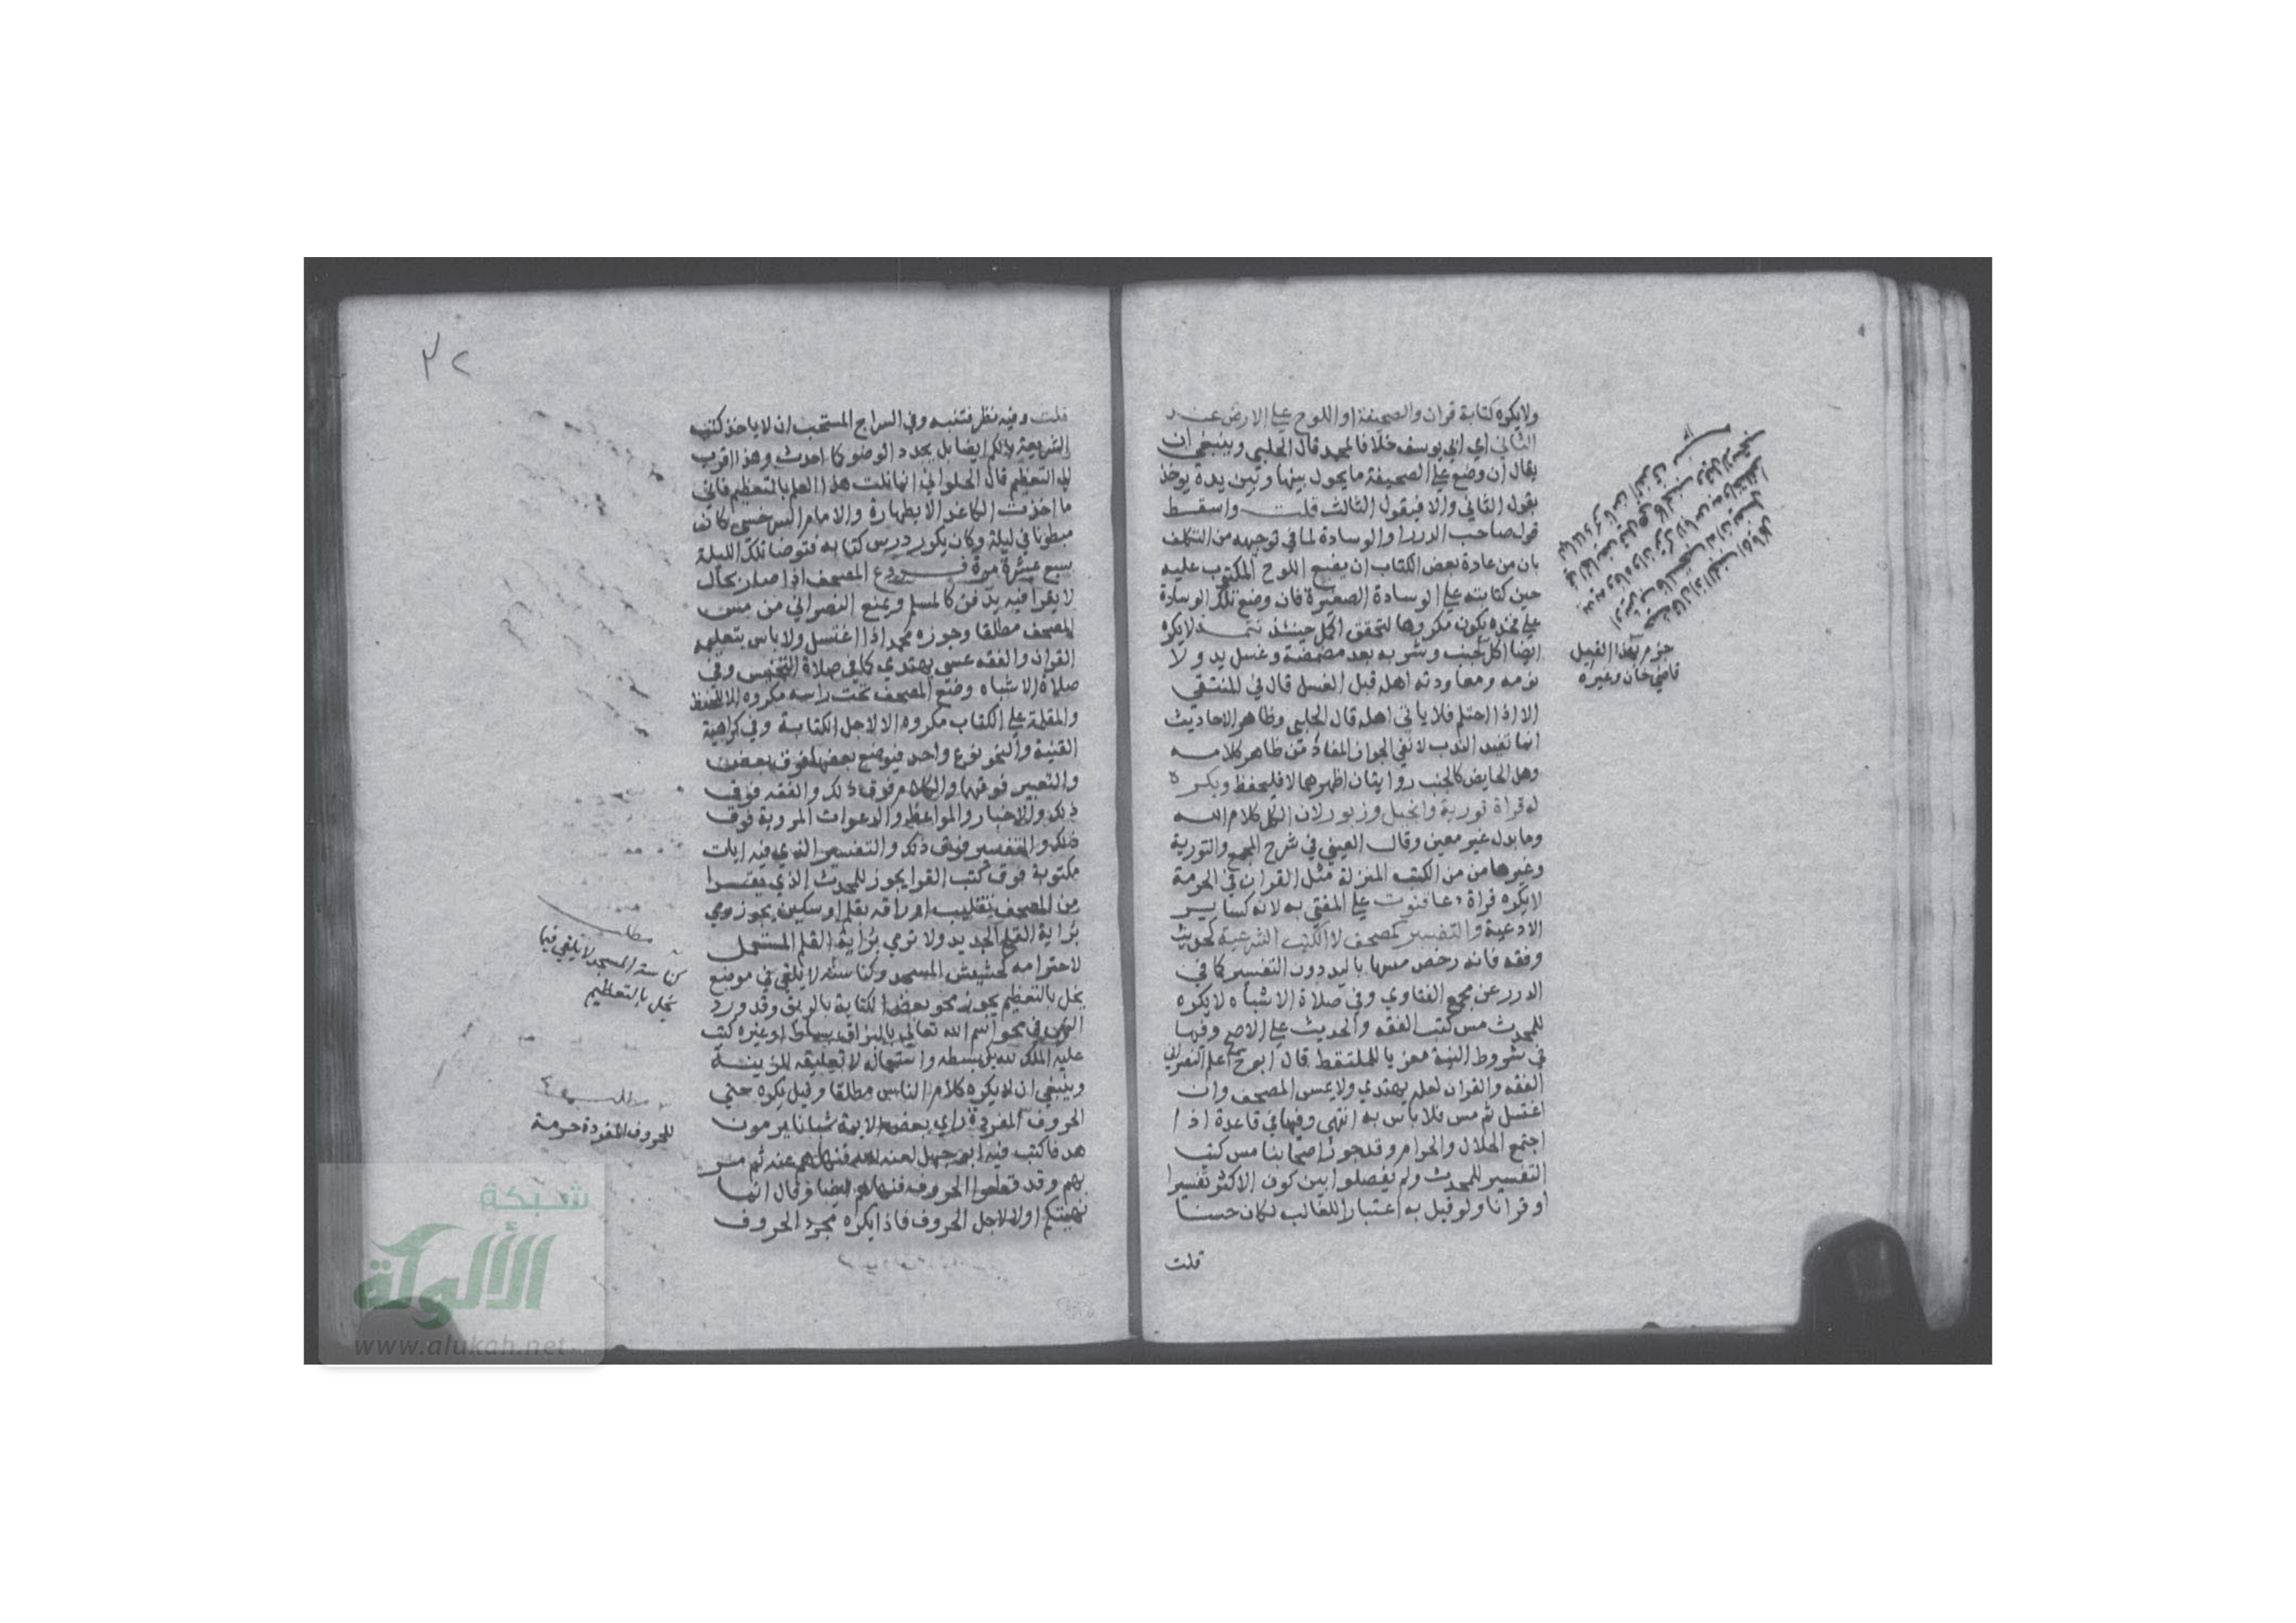 ولايكره كتابة قران والصحيفة او اللوح علي الارض عند
الثاني اي ابي يوسف خلافا لمحمد قال الحلبي وينبغي ان
يقال ان وضع علي الصحيفة ما يحول بينها وبين يده يوخذ
بقول الثاني والا فبقول الثالث قلت واسقط
قول صاحب الدرر او الوسادة لما في توجيهه من التكلف
بان من عادة بعض الكتاب ان يضع اللوح المكتوب عليه
حين كتابته علي الوسادة الصغيرة فان وضع تلك الوسادة
علي فخذه يكون مكروها لتحقق الحمل حينئذ تتمة لايكره
ايضا اكل جنب وشربه بعد مضمضة وغسل يد ولا
نومه ومعاودته اهله قبل الغسل قال في المنتقي
الا اذا احتلم فلا ياتي اهله قال الحلبي وظاهر الاحاديث
انما تفيد الندب لا نفي الجواز المفاد من ظاهر كلامه
وهل الحايض كالجنب روايتان اظهرهما لا فليحفظ ويكره
له قراة تورية وانجيل وزبور لان الكل كلام الله
وما بدل غير معين وقال العيني في شرح المجمع والتورية
وغيرها من من الكتب المنزلة مثل القران في الحرمة
لايكره قراة دعا قنوت علي المفتي به لانه كساير
الادعية والتفسير كمصحف لا الكتب الشرعية كحديث
وفقه فانه رخص مسها باليد دون التفسير كما في
الدرر عن مجمع الفتاوي وفي صلاة الاشباه لايكره
للمحدث مس كتب الفقه والحديث علي الاصح وفيها
في شروط النية معزيا للملتقط قال ابو ح اعلم النصراني
الفقه والقران لعله يهتدي ولا يمس المصحف وان
اغتسل ثم مس فلا باس به انتهي وفيها في قاعدة اذا
اجتمع الحلال والحرام وقد جوز اصحابنا مس كتب
التفسير للمحدث ولم يفصلوا بين كون الاكثر تفسيرا
او قرانا ولو قيل به اعتبارا للغالب لكان حسنا
قلت
جزم بهذا القيل
قاضي خان وغيره
٣٢
قلت وفيه نظر فتنبه وفي السراج المستحب ان لا ياخذ كتب
الشريعة بالكم ايضا بل يجدد الوضو كلما احدث وهذا اقرب
الي التعظيم قال الحلواني انما نلت هذا العلم بالتعظيم فاني
ما اخذت الكاغد الا بطهارة والامام السرخسي كان
مبطونا في ليلة وكان يكرر درس كتابه فتوضا تلك الليلة
سبع عشرة مرة فروع المصحف اذا صار بحال
لا يقرا فيه يدفن كالمسلم ويمنع النصراني من مس
المصحف مطلقا وجوزه محمد اذا اغتسل ولاباس بتعليمه
القران والفقه عسي يهتدي كما في صلاة التجنيس وفي
صلاة الاشباه وضع المصحف تحت راسه مكروه الا للحفظ
والمقلمة علي الكتاب مكروه الا لاجل الكتابة وفي كراهية
القنية والنحو نوع واحد فيوضع بعضها فوق بعض
والتعبير فوقهما والكلام فوق ذلك والفقه فوق
ذلك والاخبار والمواعظ والدعوات المروية فوق
ذلك والتفسير فوق ذلك والتفسير الذي فيه ايات
مكتوبة فوق كتب القرا يجوز للمحدث الذي يقرا
من المصحف تقليب اوراقه بقلم او سكين يجوز رمي
براية القلم الجديد ولا ترمي براية القلم المستعمل
لاحترامه كحشيش المسجد وكناسته لا يلقي في موضع
يخل بالتعظيم يجوز محو بعض الكتابة بالريق وقد ورد
النهي في محو اسم الله تعالي بالبزاق بساط او غيره كتب
عليه الملك لله يكره بسطه واستعماله لا تعليقه للزينة
وينبغي ان لا يكره كلام الناس مطلقا وقيل يكره حتي
الحروف المفردة راي بعض الايمة شبانا يرمون
هدفا كتب فيه ابو جهل لعنه الله فنهاهم عنه ثم مر
بهم وقد قطعوا الحروف فنهاهم ايضا وقال انما
نهيتكم اولا لاجل الحروف فاذا يكره مجرد الحروف
مطلب
كناسة المسجد لا يلقي فيما
يخل بالتعظيم
مطلب
للحروف المفردة حرمة
شبكة
الألوكة
www.alukah.net